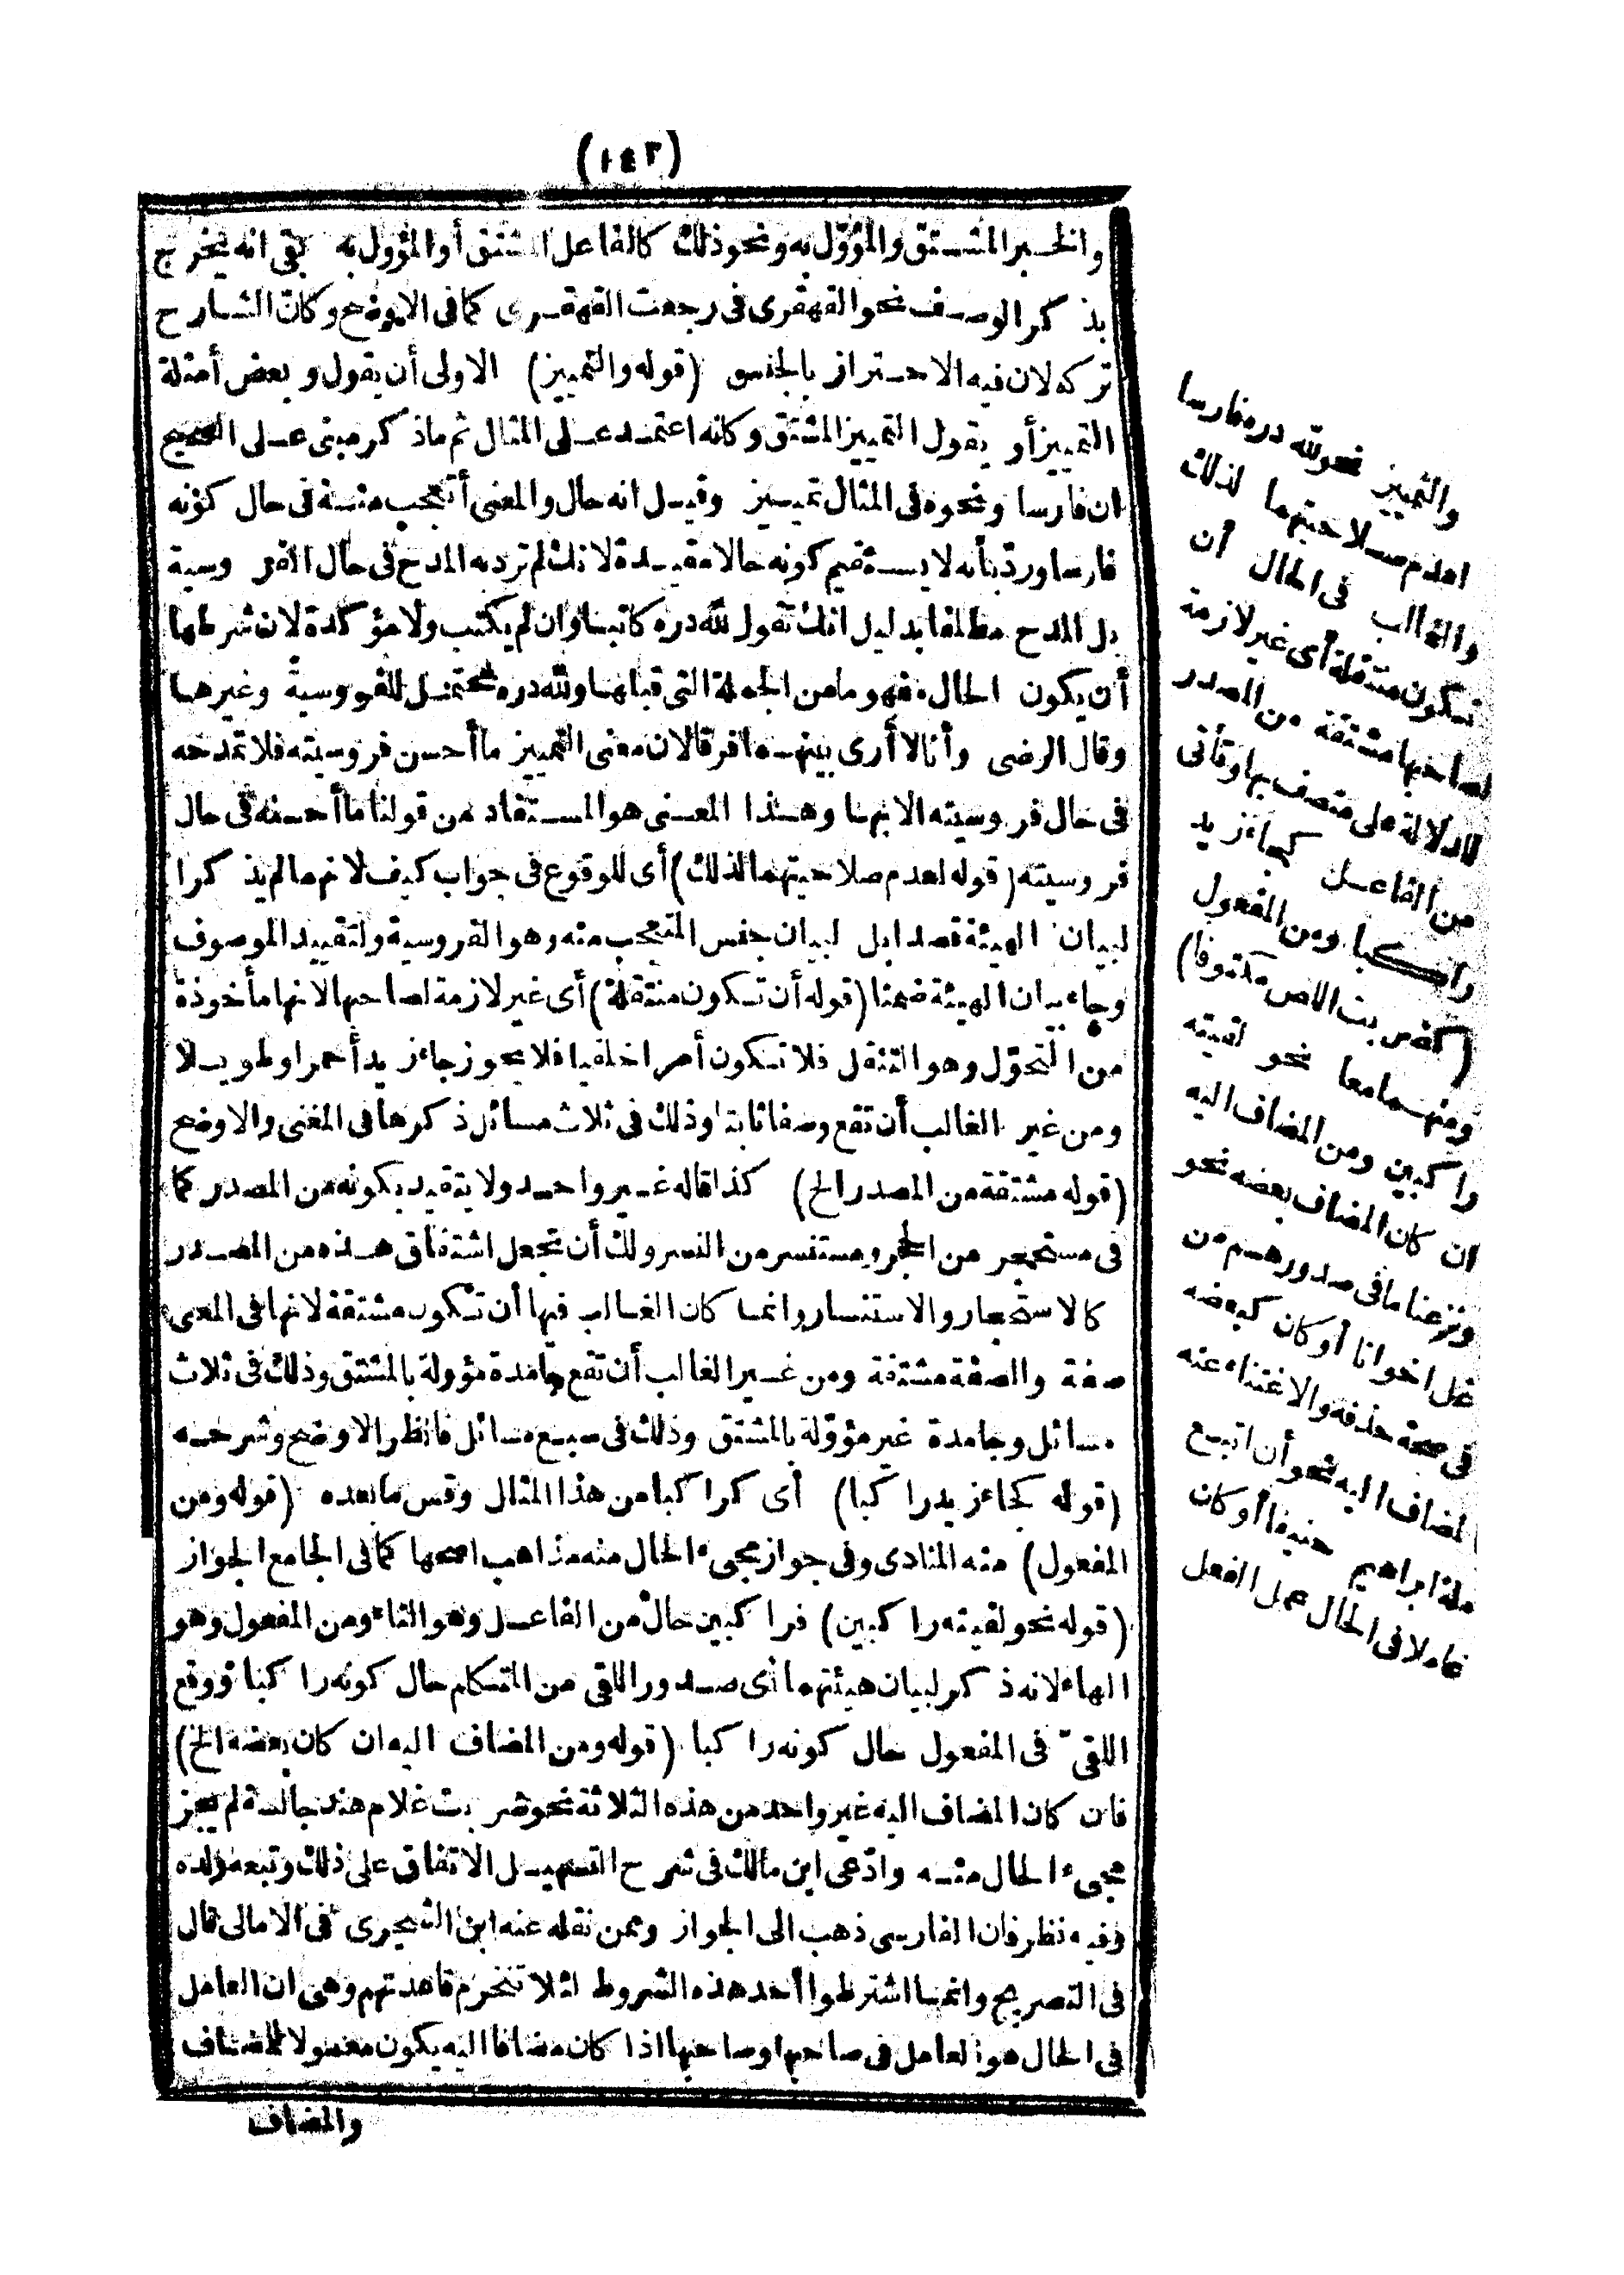 (١٤٢)
والخبر المشتق والمؤوّل به ونحو ذلك كالفاعل المشتق أو المؤول به بقى انه يخرج
بذكر الوصف نحو القهقرى فى رجعت القهقرى كما فى الاوضح وكان الشارح
تركه لان فيه الاحتراز بالجنس (قوله والتمييز) الاولى أن يقول وبعض أمثلة
التمييز أو يقول التمييز المشتق وكانه اعتمد على المثال ثم ماذكر مبنى على الصحيح
ان فارسا ونحوه فى المثال تمييز وقيل انه حال والمعنى أتعجب منه فى حال كونه
فارسا وردّ بأنه لا يستقيم كونه حالا مقيدة لانك لم ترد به المدح فى حال الفروسية
بل المدح مطلقا بدليل انك تقول لله دره كاتبا وان لم يكتب ولا مؤكدة لان شرطها
أن يكون الحال مفهوما من الجملة التى قبلها ولله دره محتمل للفروسية وغيرها
وقال الرضى وأنا لا أرى بينهما فرقا لان معنى التمييز ما أحسن فروسيته فلا تمدحه
فى حال فروسيته الا بها وهذا المعنى هو المستفاد من قولنا ما أحسنه فى حال
فروسيته (قوله لعدم صلاحيتهما لذلك) أى للوقوع فى جواب كيف لانهما لم يذكرا
لبيان الهيئة قصدا بل لبيان جنس المتعجب منه وهو الفروسية ولتقييد الموصوف
وجاء بيان الهيئة ضمنا (قوله أن تكون منتقلة) أى غير لازمة لصاحبها لانها مأخوذة
من التحوّل وهو التنقل فلا تكون أمرا خلقيا فلا يجوز جاء زيد أحمر او طويلا
ومن غير الغالب أن تقع وصفا ثابتا وذلك فى ثلاث مسائل ذكرها فى المغنى والاوضح
(قوله مشتقة من المصدر الخ) كذا قاله غير واحد ولا يتقيد بكونه من المصدر كما
فى مستحجر من الحجر ومستنسر من النسر ولك أن تجعل اشتقاق هذه من المصدر
كالاستحجار والاستنسار وانما كان الغالب فيها أن تكون مشتقة لانها فى المعنى
صفة والصفة مشتقة ومن غير الغالب أن تقع جامدة مؤولة بالمشتق وذلك فى ثلاث
مسائل وجامدة غير مؤوّلة بالمشتق وذلك فى سبع مسائل فانظر الاوضح وشرحه
(قوله كجاء زيد راكبا) أى كراكبا من هذا المثال وقس ما بعده (قوله ومن
المفعول) منه المنادى وفى جواز مجىء الحال منه مذاهب اصحها كما فى الجامع الجواز
(قوله نحو لقيته راكبين) فراكبين حال من الفاعل وهو التاء ومن المفعول وهو
الهاء لانه ذكر لبيان هيئتهما أى صدور اللقى من المتكلم حال كونه راكبا ووقع
اللقىّ فى المفعول حال كونه راكبا (قوله ومن المضاف اليه ان كان بعضه الخ)
فان كان المضاف اليه غير واحد من هذه الثلاثة نحو ضربت غلام هند جالسة لم يجز
مجىء الحال منه وادّعى ابن مالك فى شرح التسهيل الاتفاق على ذلك وتبعه ولده
وفيه نظر فان الفارسى ذهب الى الجواز وممن نقله عنه ابن الشجرى فى الامالى قال
فى التصريح وانما اشترطوا أحد هذه الشروط لئلا تنخرم قاعدتهم وهى ان العامل
فى الحال هو العامل فى صاحبها وصاحبها اذا كان مضافا اليه يكون معمولا للمضاف
والمضاف
والتمييز نحو لله دره فارسا
لعدم صلاحيتهما لذلك
والغالب فى الحال أن
تكون منتقلة أى غير لازمة
لصاحبها مشتقة من المصدر
للدلالة على متصف بها وتأتى
من الفاعل كجاء زيد
راكبا ومن المفعول
(كضربت اللص مكتوفا)
ومنهما معا نحو لقيته
راكبين ومن المضاف اليه
ان كان المضاف بعضه نحو
ونزعنا ما فى صدورهم من
غل اخوانا أو كان كبعضه
فى صحة حذفه والاغتناء عنه
لمضاف اليه نحو أن اتبع
ملة ابراهيم حنيفا أو كان
عاملا فى الحال عمل الفعل